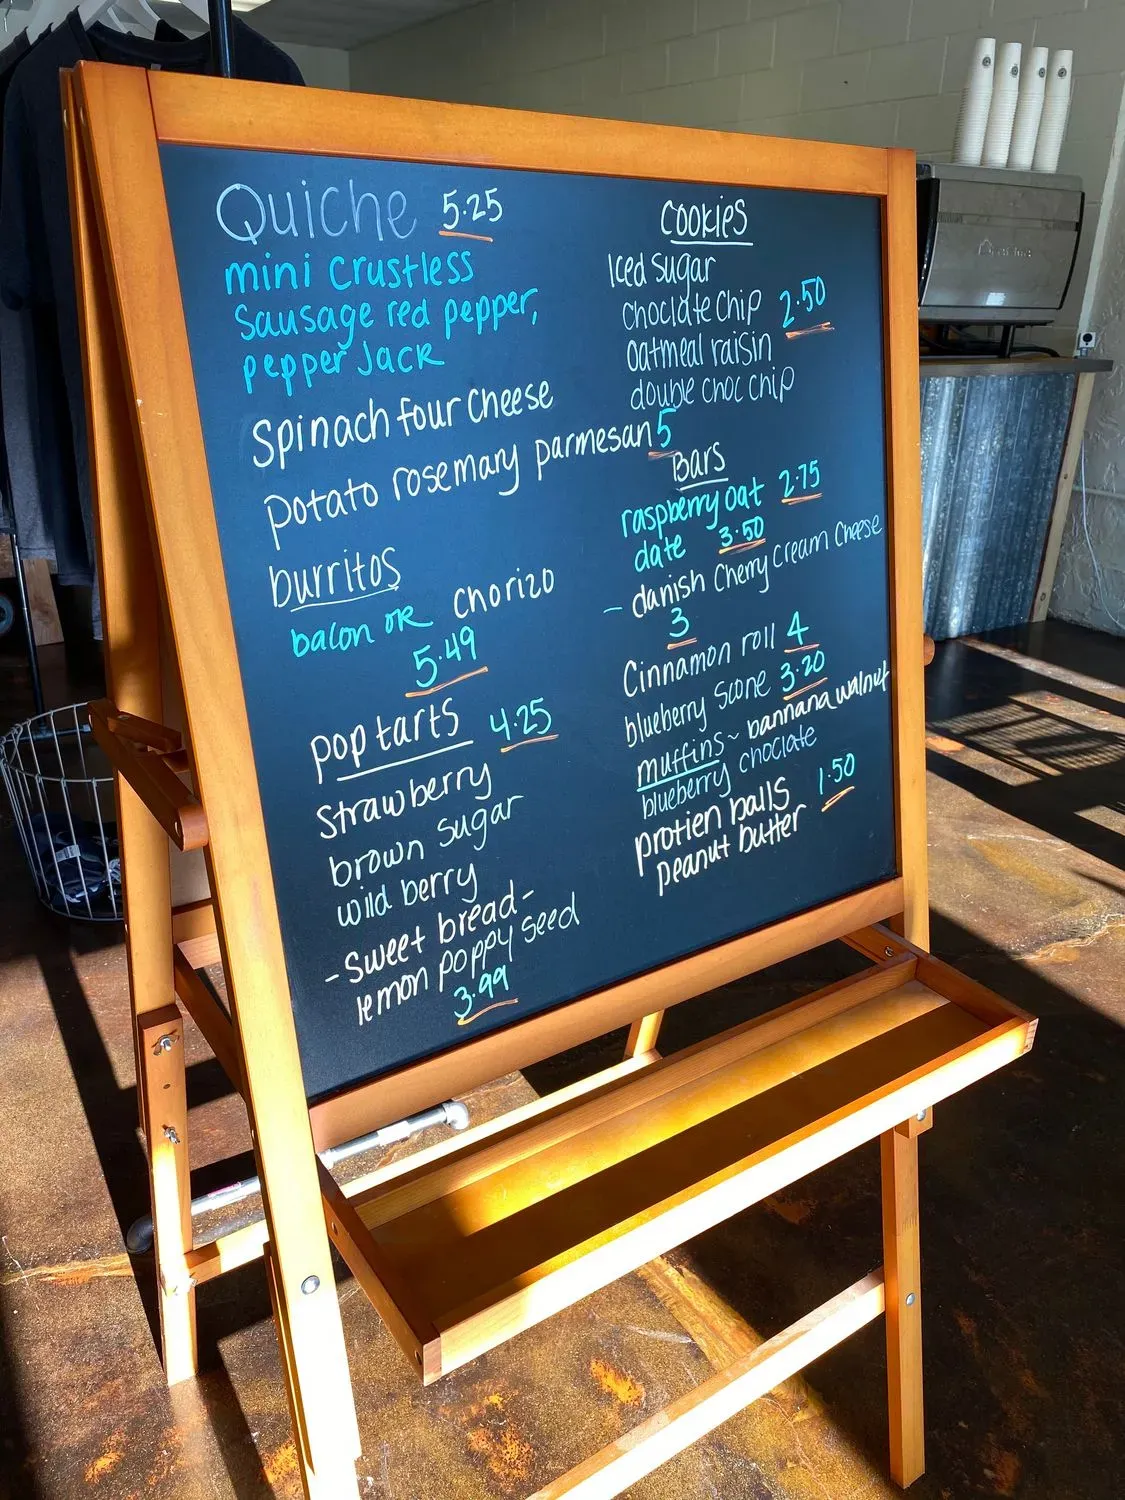 Quiche 5.25
mini crustless
Sausage red pepper,
pepper Jack
Spinach four cheese
potato rosemary parmesan 5
burritos
bacon OR chorizo
5.49
pop tarts 4.25
Strawberry
brown sugar
wild berry
-sweet bread-
lemon poppy seed
3.99
Cookies
Iced sugar
choclate chip 2.50
oatmeal raisin
double choc chip
Bars
raspberry oat 2.75
date 3.50
- danish cherry cream cheese
3
Cinnamon roll 4
blueberry scone 3.20
muffins ~ bannana walnut
blueberry choclate
protien balls 1.50
peanut butter